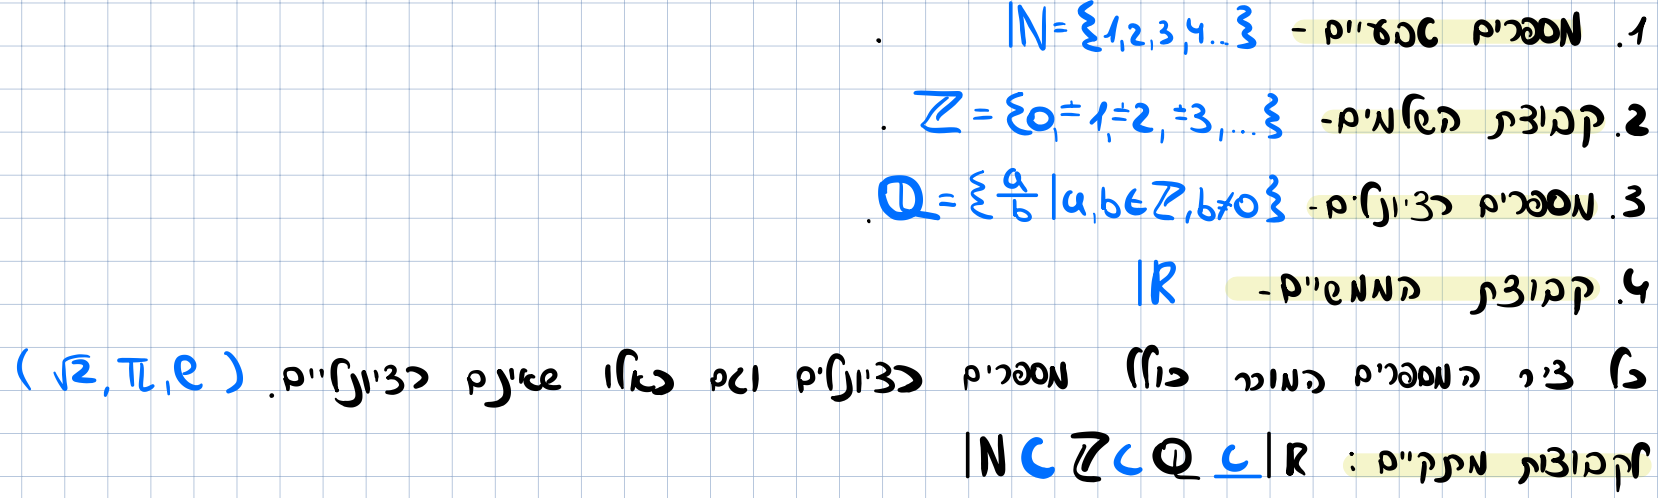 1. מספרים טבעיים - ℕ={1,2,3,4...}.
2. קבוצת השלמים- ℤ={0,±1,±2,±3,...}.
3. מספרים רציונלים- ℚ={a/b|a,b∈ℤ,b≠0}.
4. קבוצת הממשיים- ℝ
כל ציר המספרים המוכר כולל מספרים רציונלים וגם כאלו שאינם רציונליים. (√2,π,e)
לקבוצות מתקיים: ℕ⊂ℤ⊂ℚ⊆ℝ